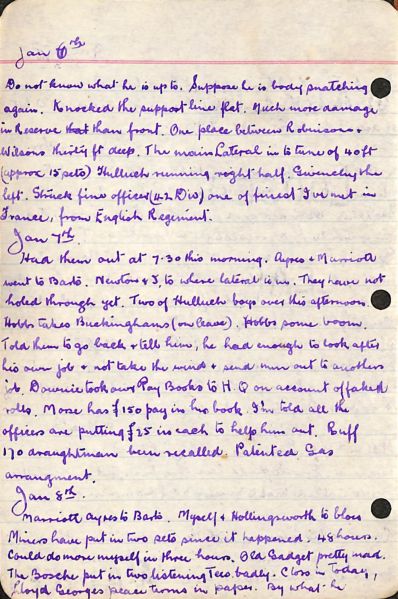 Jan 6th
Do not know what he is up to. Suppose he is body snatching
again. Knocked the support line flat. Much more damage
in Reserve that than front. One place between Robinsons +
Wilsons thirty ft deep. The main Lateral in to tune of 40 ft
(approx 15 sets) Hulluch running right half. Givenchy the
left. Struck fine officer (42 Div) one of finest I've met in
France, from English Regiment.
Jan 7th.
Had them out at 7.30 this morning. Ayres + Marriott
went to Barts. Newton + I, to where lateral is in. They have not
holed through yet. Two of Hulluch boys over this afternoon.
Hobbs takes Buckinghams (on leave). Hobbs some
Told them to go back + tell him, he had enough to look after
his own job + not take the wind + send men out to anothers
job. Downie took our Pay Books to H.Q on account of faked
rolls. Morse has £150 pay in his book. I'm told all the
officers are putting £25 in each to help him out. Buff
170 draughtman been recalled. Patented Gas
arrangment.
Jan 8th.
Marriott Ayres to Barts. Myself + Hollingsworth to blow
Miners have put in two sets since it happened. 48 hours.
Could do more myself in three hours. Old Gadget pretty mad.
The Bosche put in two listening Tees, badly. Close in Today,
Lloyd Georges peace terms in paper. By what he